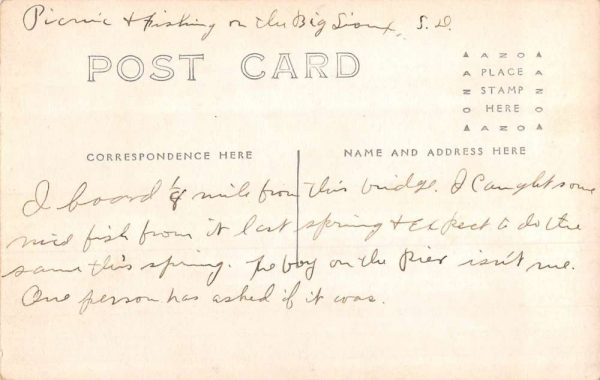 Picnic & Fishing on the Big Sioux, S.D.
POST CARD
▲ A Z O ▲
A PLACE A
N STAMP N
O HERE O
▲ A Z O ▲
CORRESPONDENCE HERE
NAME AND ADDRESS HERE
I board ¼ mile from this bridge. I Caught some
nice fish from it last spring & Expect to do the
same this spring. The boy on the Pier isn't me.
One person has asked if it was.